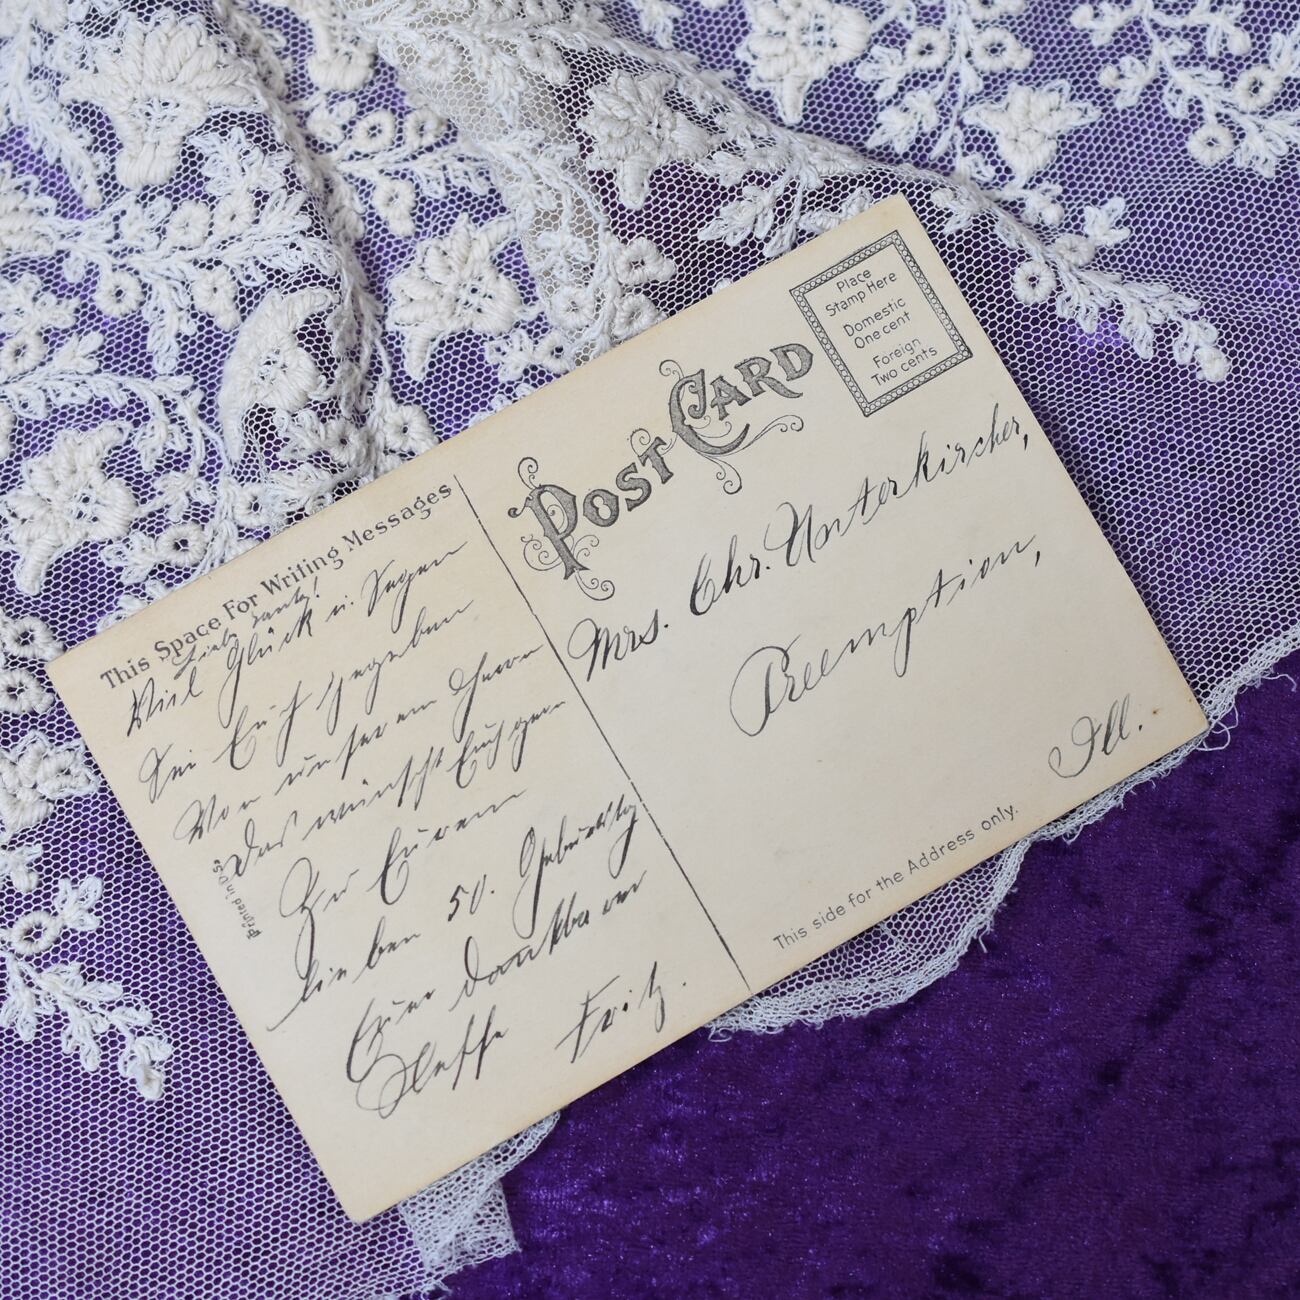 This Space For Writing Messages
Liebe Tante!
Viel Glück u. Segen
Sei Euch gegeben
Von unserem Herrn
Das wünscht Euch gern
Zu Eurem
lieben 50. Geburtstag
Euer dankbarer
Neffe Fritz.
Printed in U.S.
POST CARD
Place
Stamp Here
Domestic
One cent
Foreign
Two cents
Mrs. Chr. Unterkircher,
Preemption,
Ill.
This side for the Address only.